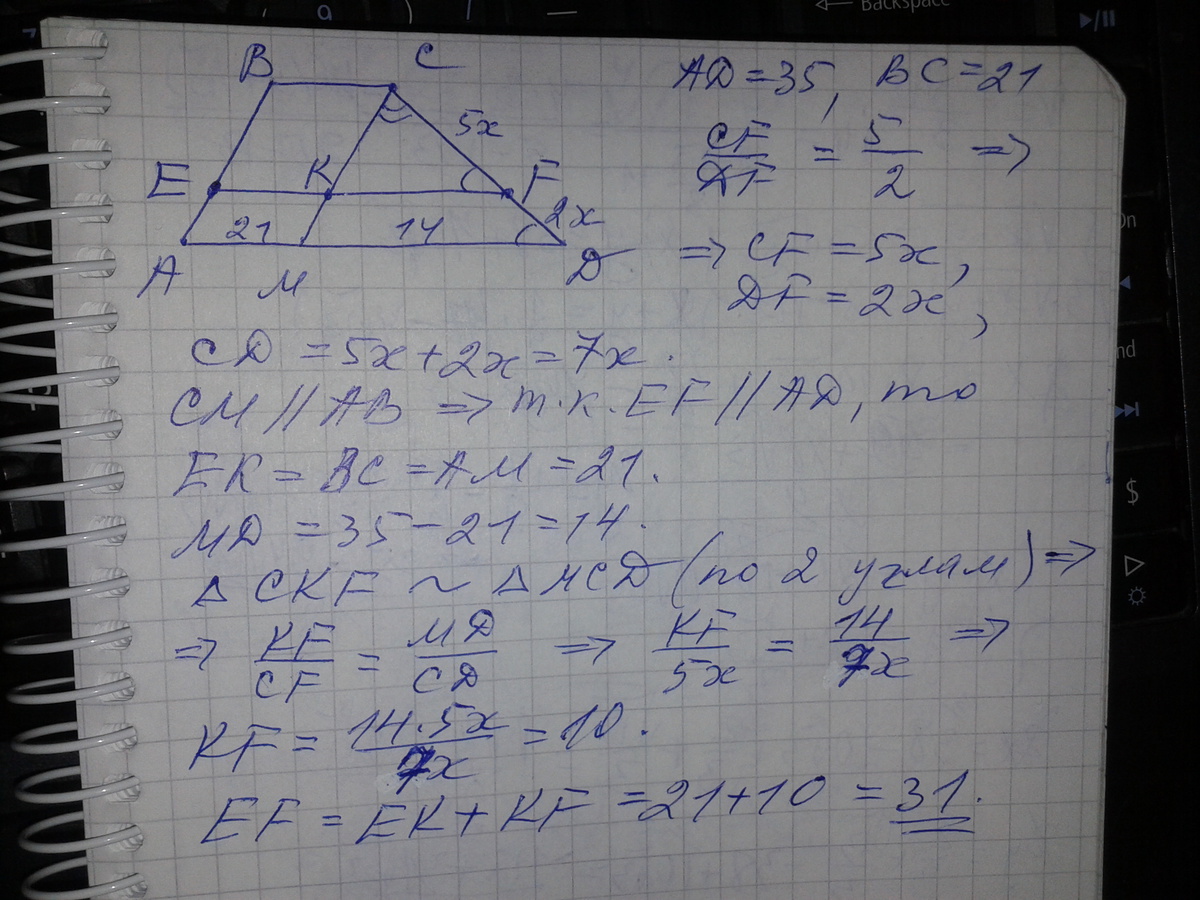 Backspace
B C
AD = 35, BC = 21
5x
CF/DF = 5/2 =>
E K F
2x
21 14
A M D
=> CF = 5x,
DF = 2x,
CD = 5x + 2x = 7x.
CM // AB => т.к. EF // AD, то
EK = BC = AM = 21.
MD = 35 - 21 = 14.
△ CKF ~ △ MCD (по 2 углам) =>
=> KF/CF = MD/CD => KF/5x = 14/7x =>
KF = 14·5x/7x = 10.
EF = EK + KF = 21 + 10 = 31.
$